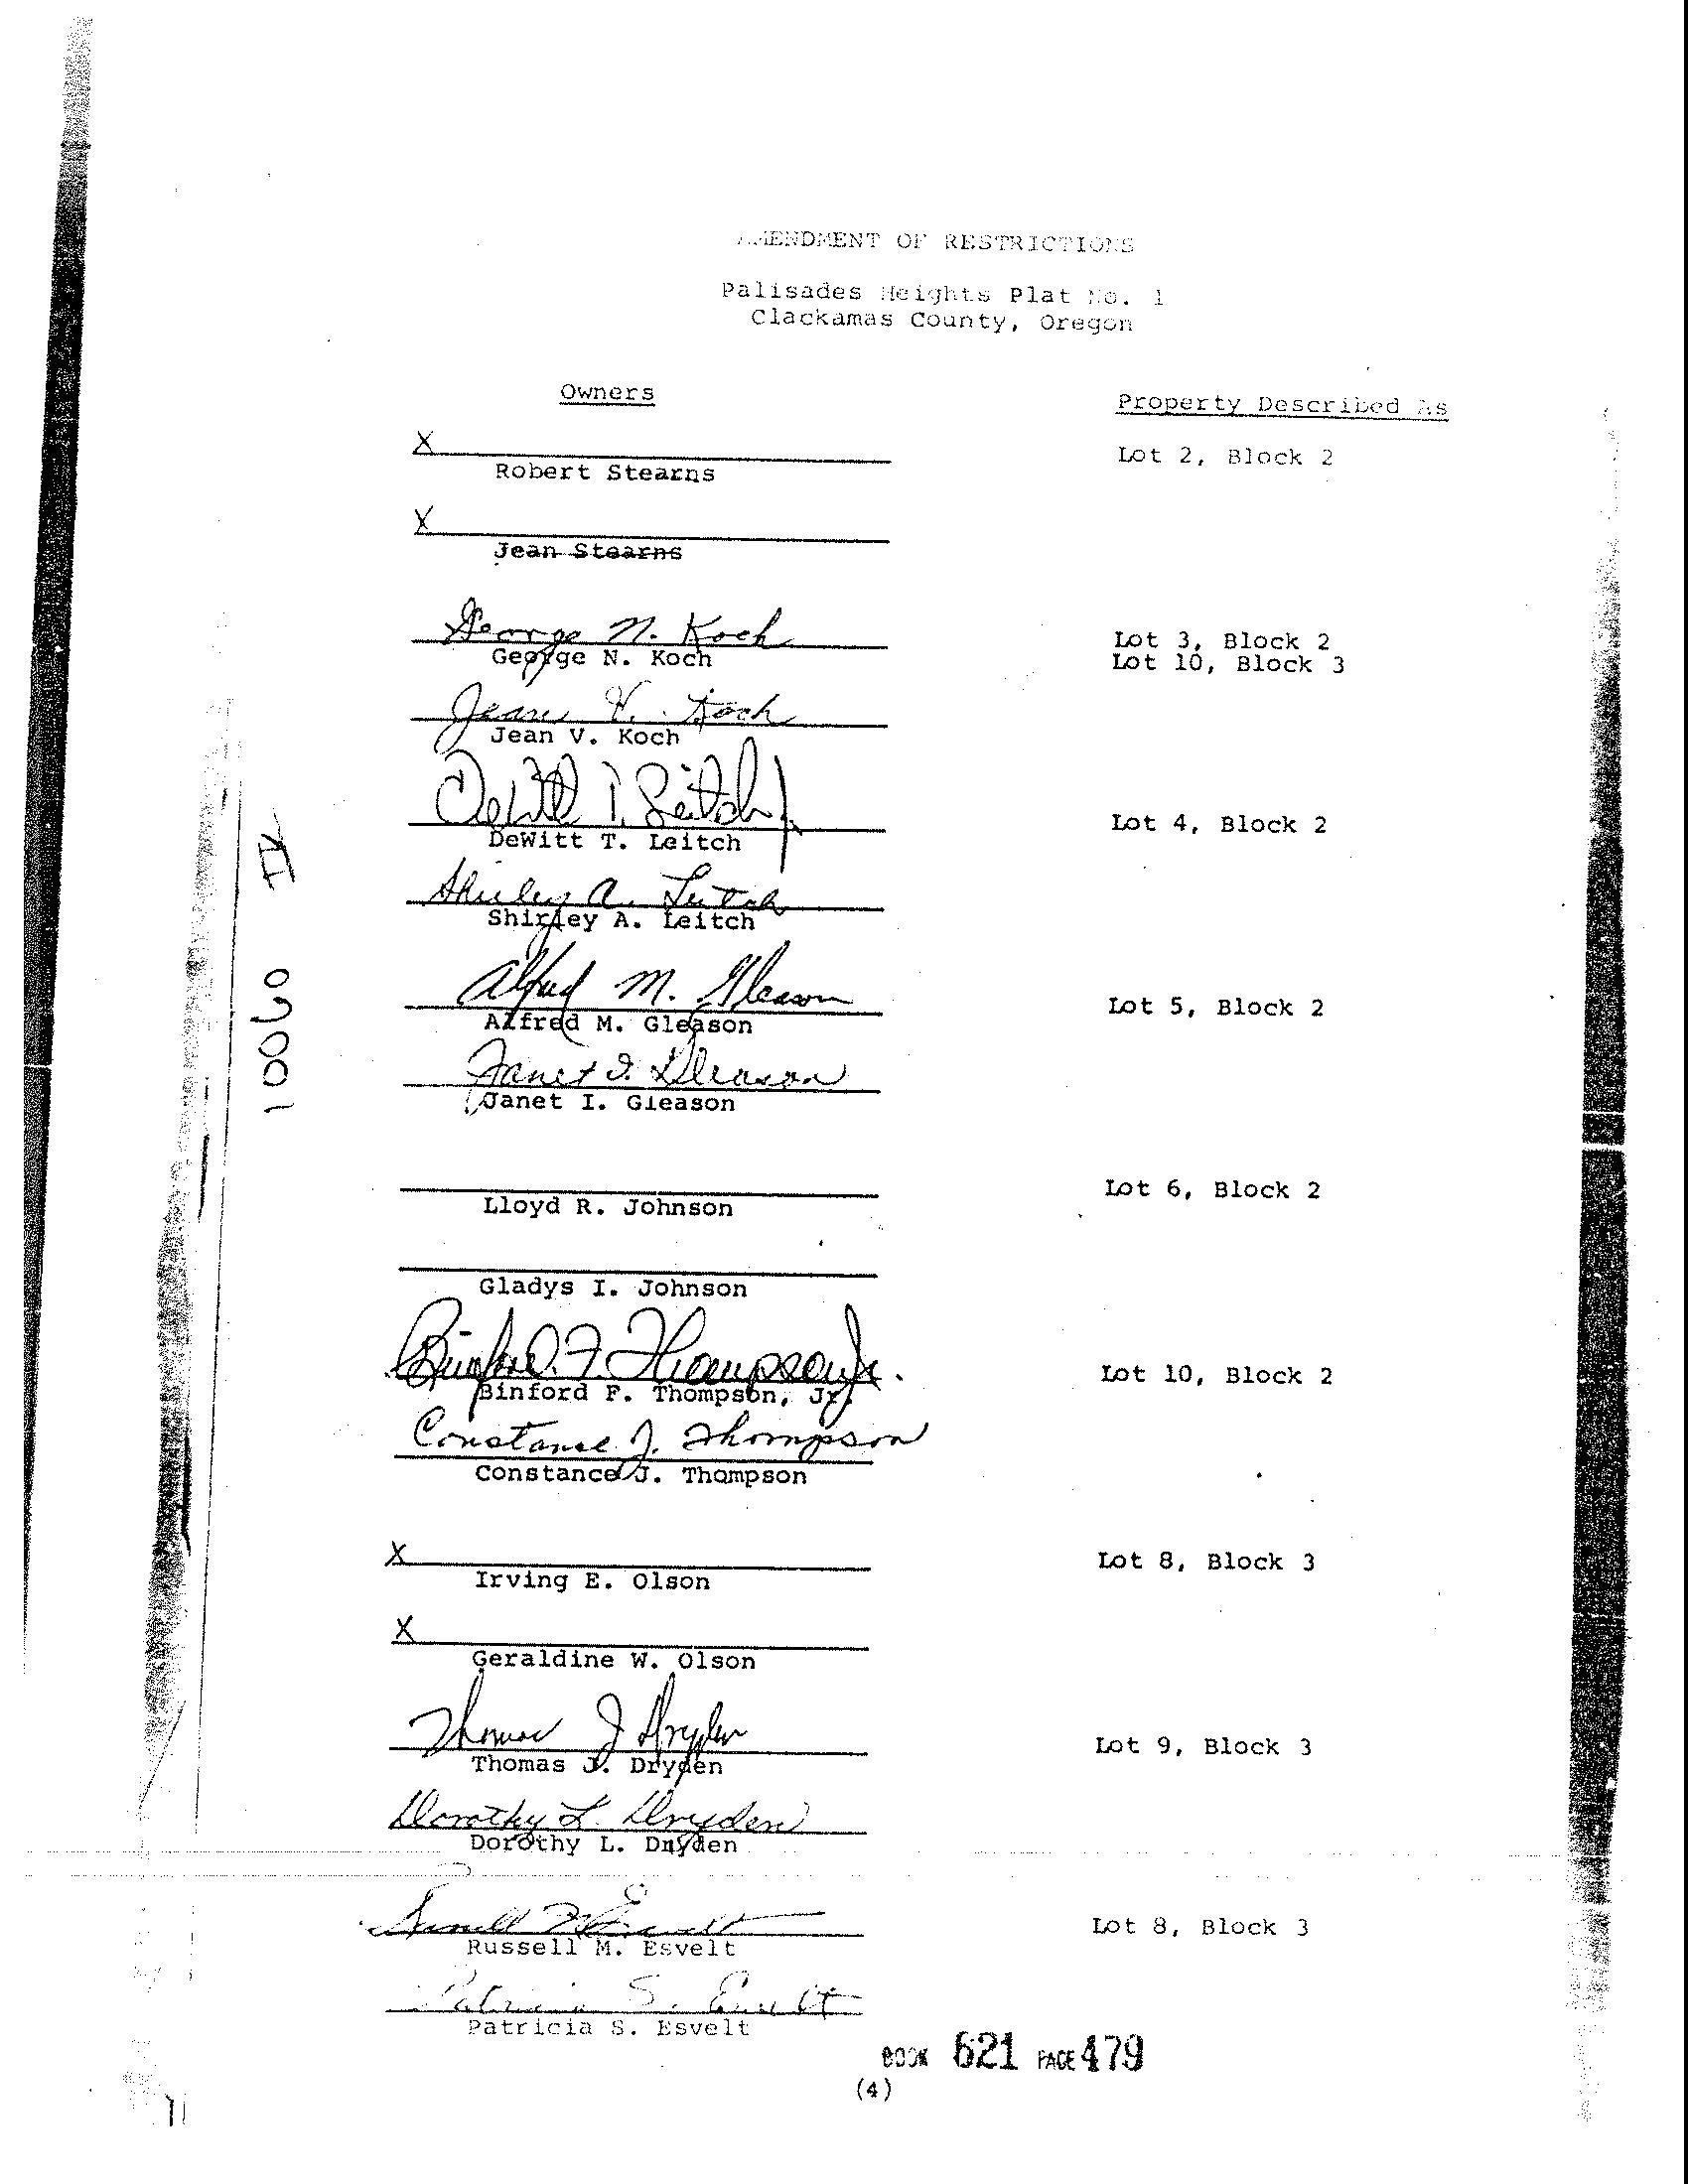 AMENDMENT OF RESTRICTIONS
Palisades Heights Plat No. 1
Clackamas County, Oregon
Owners
Property Described As
X
Robert Stearns
Lot 2, Block 2
X
Jean Stearns
George N. Koch
George N. Koch
Lot 3, Block 2
Lot 10, Block 3
Jean V. Koch
Jean V. Koch
DeWitt T. Leitch
DeWitt T. Leitch
Lot 4, Block 2
Shirley A. Leitch
Shirley A. Leitch
Alfred M. Gleason
Alfred M. Gleason
Lot 5, Block 2
Janet I. Gleason
Janet I. Gleason
Lloyd R. Johnson
Lot 6, Block 2
Gladys I. Johnson
Binford F. Thompson Jr.
Binford F. Thompson, Jr.
Lot 10, Block 2
Constance J. Thompson
Constance J. Thompson
X
Irving E. Olson
Lot 8, Block 3
X
Geraldine W. Olson
Thomas J Dryden
Thomas J. Dryden
Lot 9, Block 3
Dorothy L. Dryden
Dorothy L. Dryden
Russell M Esvelt
Russell M. Esvelt
Lot 8, Block 3
Patricia S. Esvelt
Patricia S. Esvelt
BOOK 621 PAGE 479
(4)